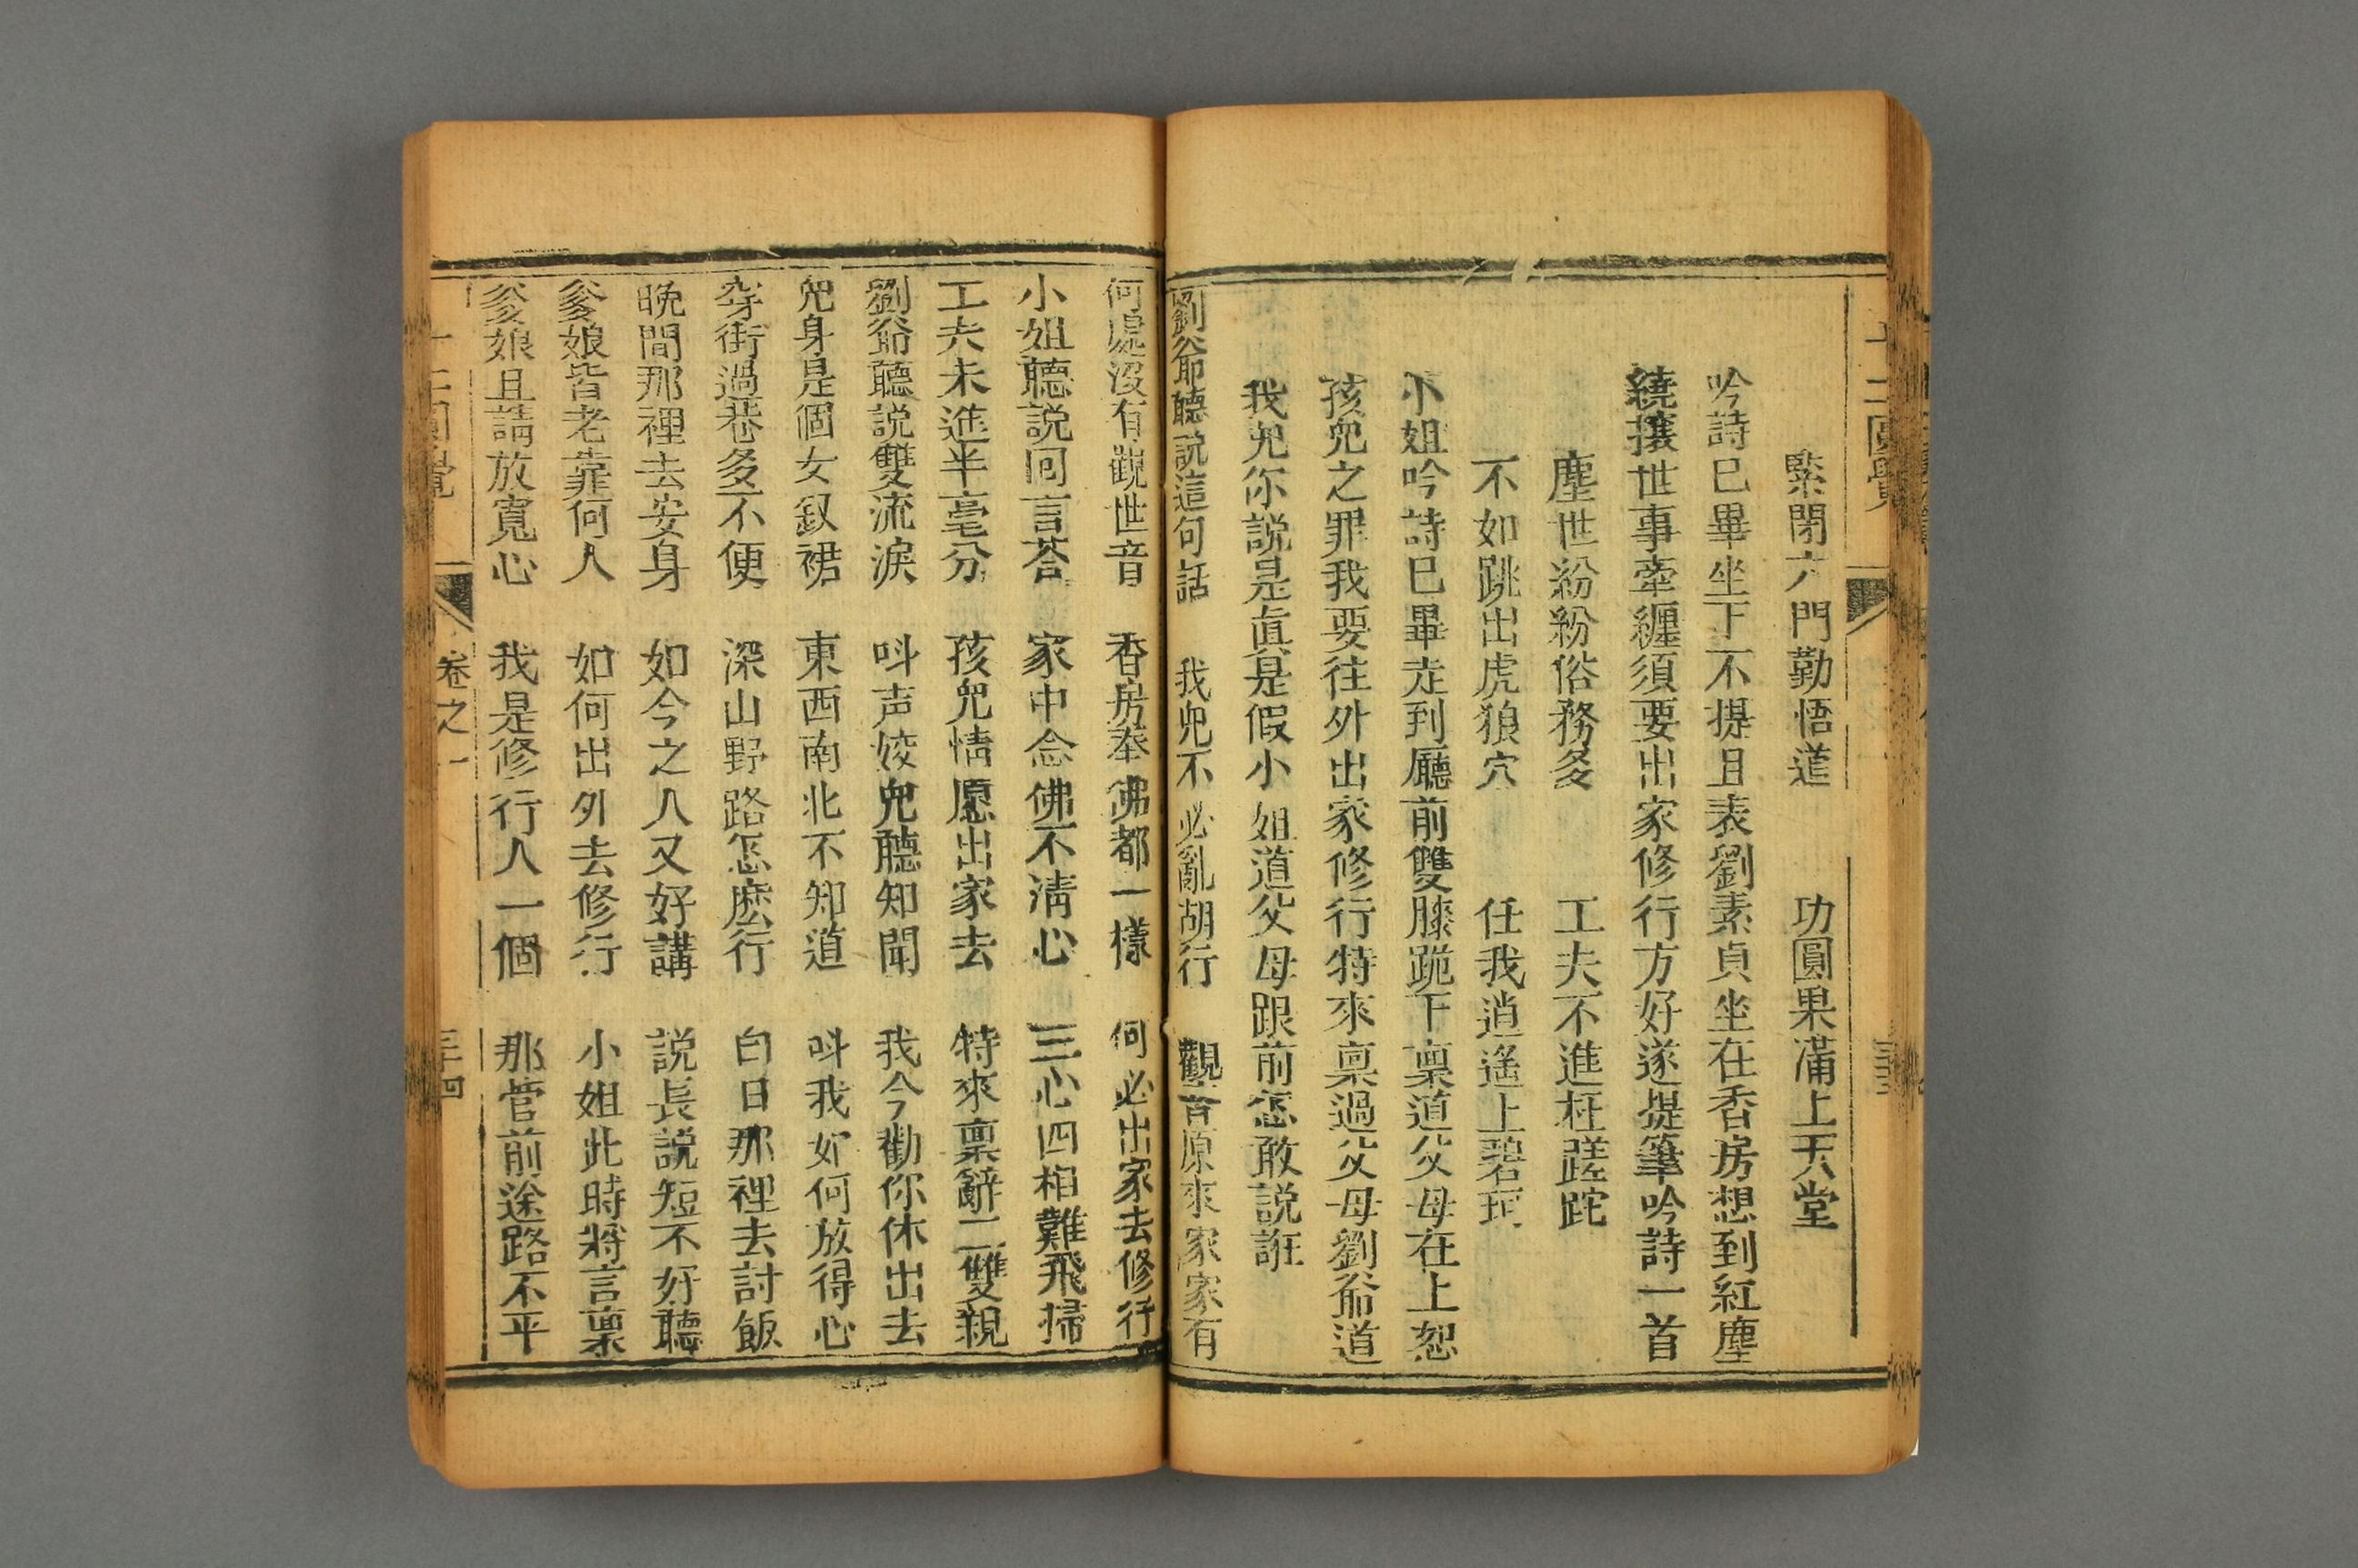 十二圓覺
緊閉六門勤悟道　功圓果滿上天堂
吟詩已畢坐下不提且表劉素貞坐在香房想到紅塵
繞攘世事牽纏須要出家修行方好遂提筆吟詩一首
塵世紛紛俗務多　工夫不進枉蹉跎
不如跳出虎狼穴　任我逍遙上碧珂
小姐吟詩已畢走到廳前雙膝跪下禀道父母在上恕
孩兒之罪我要往外出家修行特來禀過父母劉爺道
我兒你説是眞是假小姐道父母跟前怎敢説誑
劉爺聽説這句話　我兒不必亂胡行　觀音原來家家有
何處沒有觀世音　香房奉佛都一樣　何必出家去修行
小姐聽説囘言荅　家中念佛不清心　三心四相難飛掃
工夫未進半毫分　孩兒情愿出家去　特來禀辭二雙親
劉爺聽説雙流淚　呌声姣兒聽知聞　我今勸你休出去
兒身是個女釵裙　東西南北不知道　呌我如何放得心
穿街過巷多不便　深山野路怎麽行　白日那裡去討飯
晩間那裡去安身　如今之人又好講　説長説短不好聽
爹娘皆老靠何人　如何出外去修行　小姐此時將言禀
爹娘且請放寬心　我是修行人一個　那管前途路不平
十二圓覺　卷之一　三十四